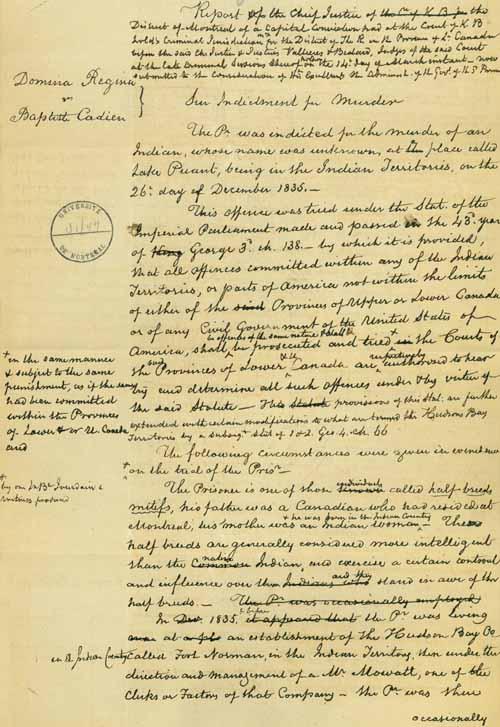 Report of the Chief Justice of the Ct of K B for the
District of Montreal of a Capital Conviction had at the Court of K B
holdg Criminal Jurisdiction for the District of M in the Province of L. Canada
before the said Ch. Justice & Justices Vallieres & Bedard, Judges of the said Court
at the late Criminal Sessions thereof on the 14th day of March instant - now
submitted to the Consideration of His Excellency the Administ. of the Govt. of the
Domina Regina
vs
Baptiste Cadien
Sur Indictment for Murder
The Pr. was indicted for the murder of an
Indian, whose name was unknown, at the place called
Lake Puant, being in the Indian Territories, on the
26th day of December 1835. -
This offence was tried under the Stat. of the
Imperial Parliament made and passed in the 43d. year
of King George 3d. ch. 138. - by which it is provided,
that all offences committed within any of the Indian
Territories, or parts of America not within the limits
of either of the said Provinces of Upper or Lower Canada
or of any Civil Government of the United States of
be offences of the same nature & shall be
America, shall be prosecuted and tried + in the Courts of
the Provinces of Lower & Up. Canada are respectively authorized to hear
try and determine all such offences under & by virtue of
the said Statute - This Statute provisions of this Stat. are further
extended with certain modifications to what are termed the Hudsons Bay
Territories by a subsequt. Stat of 1 & 2. Geo 4. ch. 66
+ in the same manner
& subject to the same
punishment, as if the same
had been committed
within the Provinces
of Lower & or U. Canada
and
UNIVERSITÉ
DE MONTREAL
The following circumstances were given in evidence
+ on the trial of the Prisr. -
+ by one J. Be. Jourdain a
witness produced
The Prisoner is one of those individuals known called half-breeds
mitifs, his father was a Canadian who had resided at
& he was born in the Indian Country
Montreal, his mother was an Indian woman - These
half breeds are generally considered more intelligent
than the Common native Indian, and exercise a certain controul
and influence over the Indians who and they stand in awe of the
half breeds. - The Pr. was occasionally employed
In Decr. 1835, & before it appeared that the Pr. was living
at a pl an establishment of the Hudson Bay Co.
in the Indian Country called Fort Norman, in the Indian Territory, then under the
direction and management of a Mr. Mowatt, one of the
Clerks or Factors of that Company - the Pr. was there
occasionally